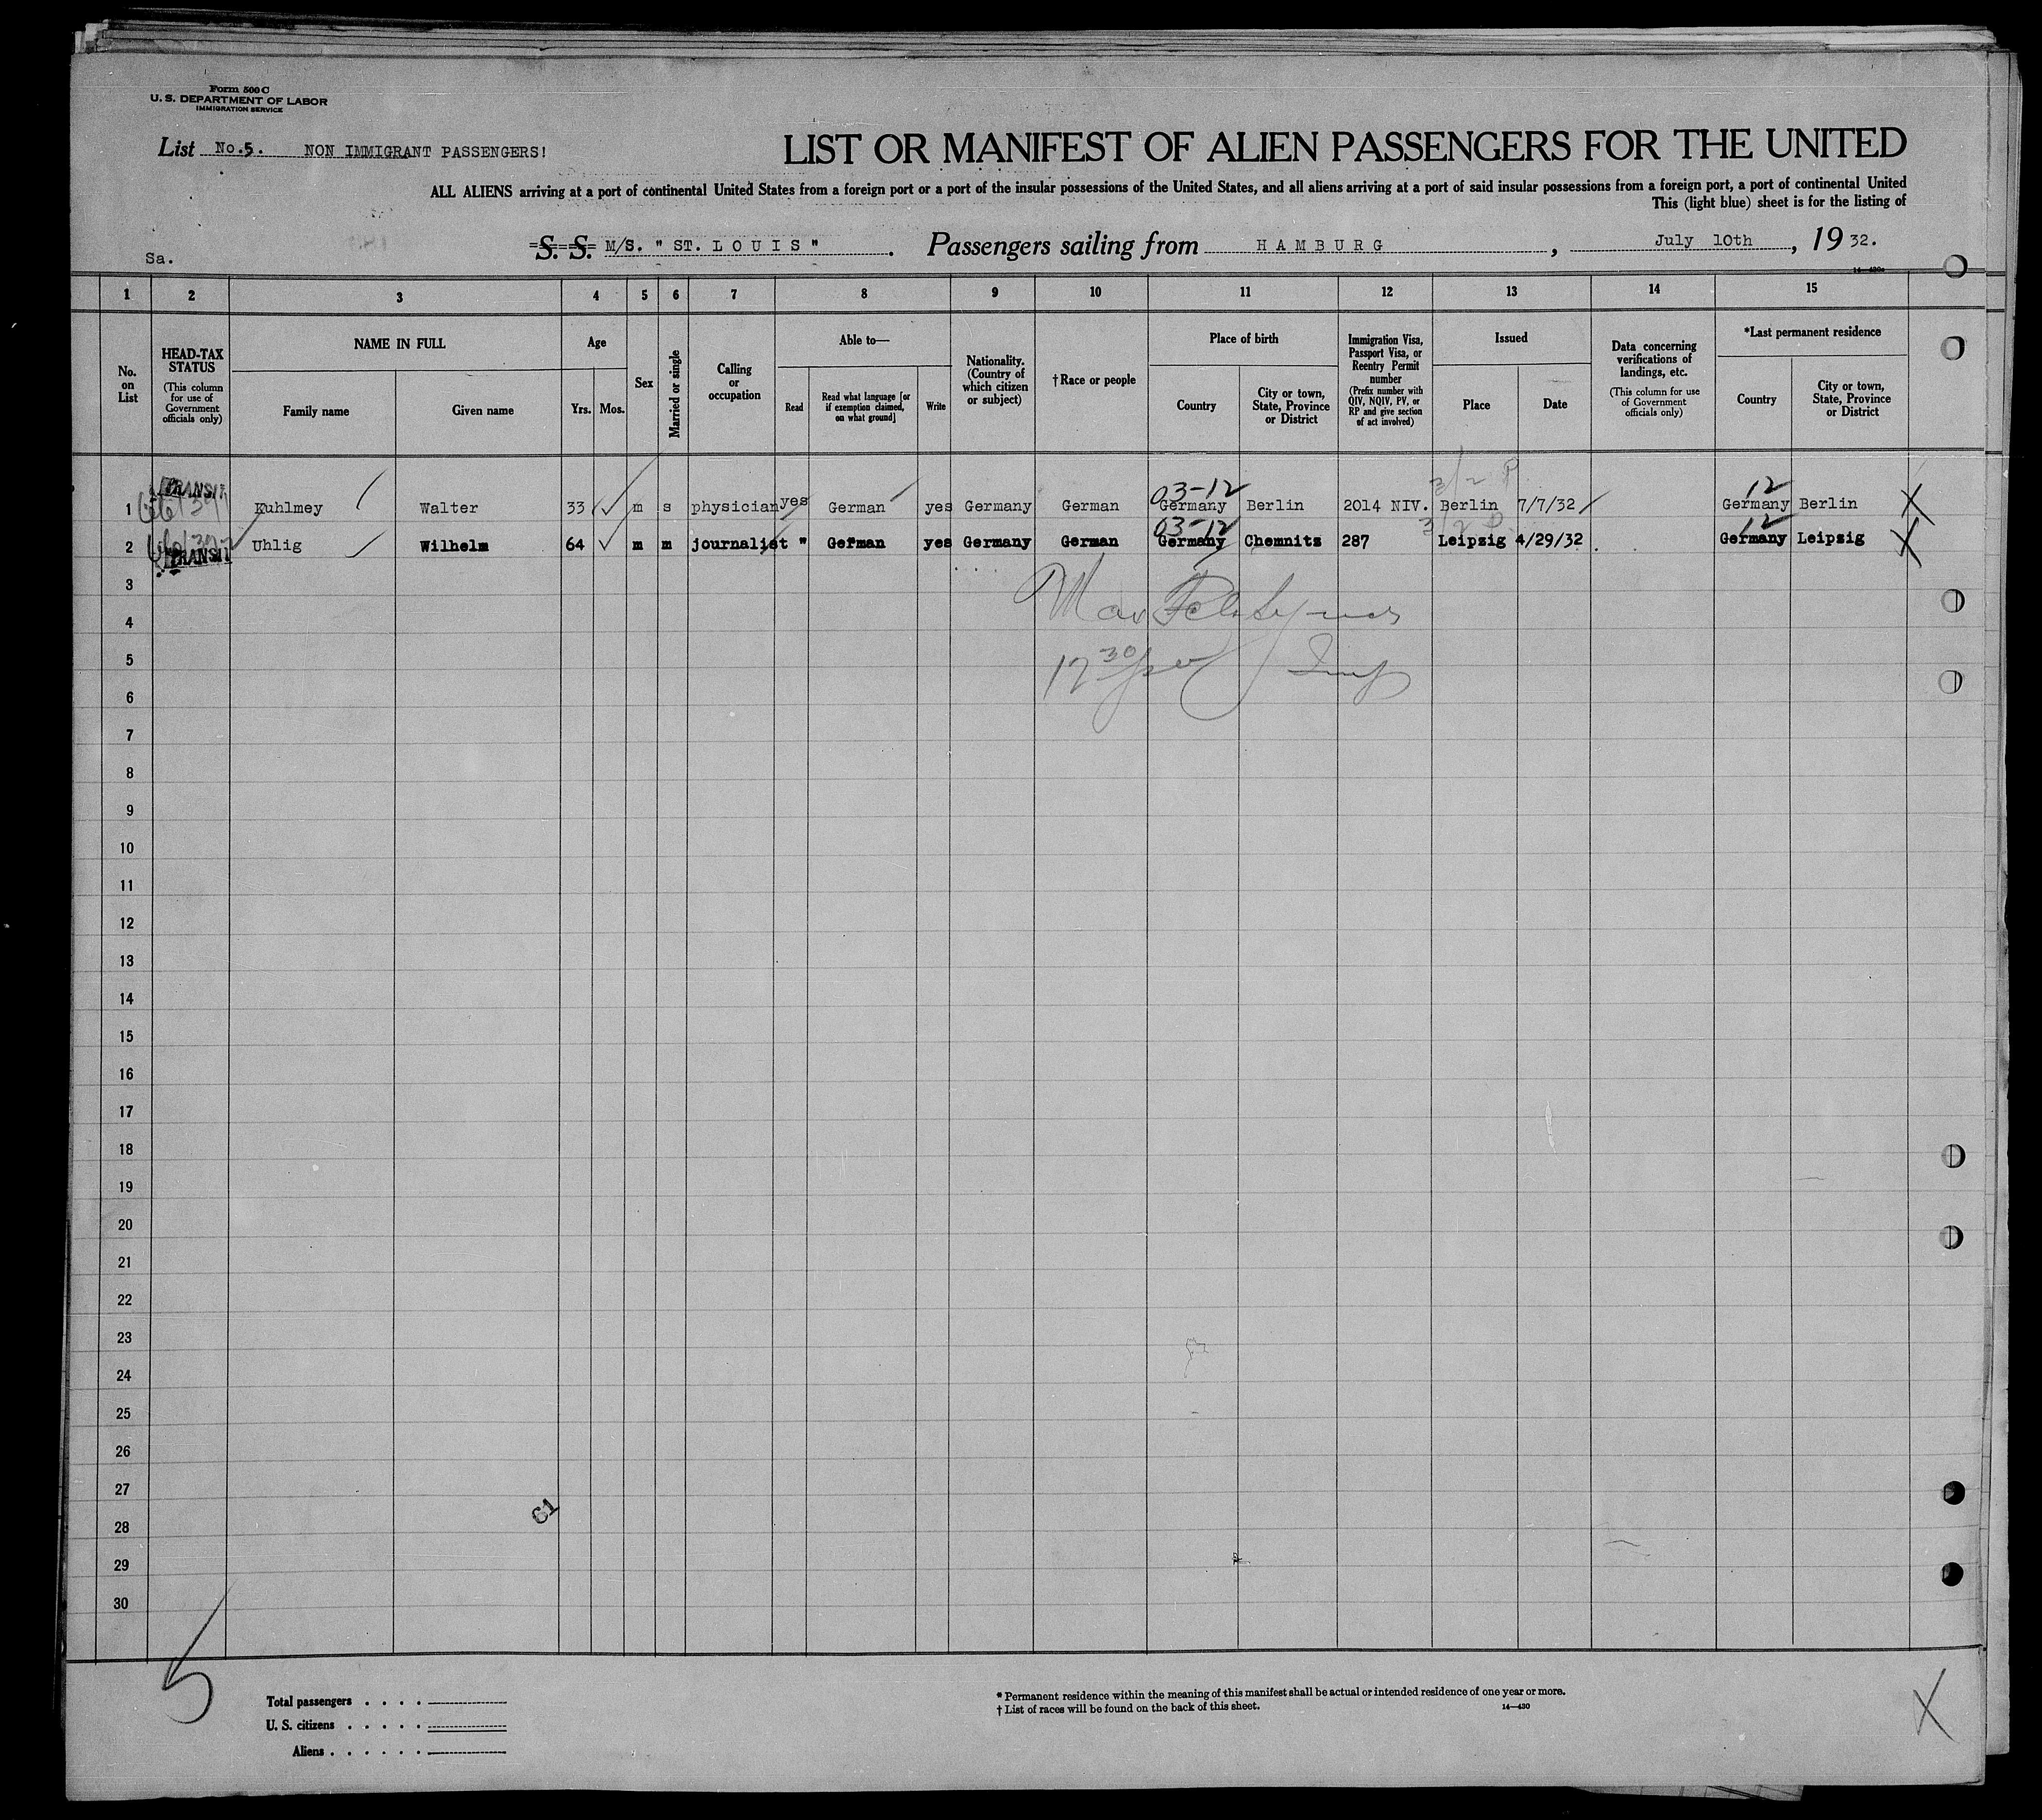 Form 500 C
U. S. DEPARTMENT OF LABOR
IMMIGRATION SERVICE
List No.5. NON IMMIGRANT PASSENGERS!
LIST OR MANIFEST OF ALIEN PASSENGERS FOR THE UNITED
ALL ALIENS arriving at a port of continental United States from a foreign port or a port of the insular possessions of the United States, and all aliens arriving at a port of said insular possessions from a foreign port, a port of continental United
This (light blue) sheet is for the listing of
Sa.
S. S. M/S. " ST. L O U I S ". Passengers sailing from H A M B U R G, July 10th, 19 32.
14—430a
1 2 3 4 5 6 7 8 9 10 11 12 13 14 15
No. on List
HEAD-TAX STATUS
(This column for use of Government officials only)
NAME IN FULL
Family name
Given name
Age
Yrs. Mos.
Sex
Married or single
Calling or occupation
Able to—
Read
Read what language [or if exemption claimed, on what ground]
Write
Nationality. (Country of which citizen or subject)
† Race or people
Place of birth
Country
City or town, State, Province or District
Immigration Visa, Passport Visa, or Reentry Permit number
(Prefix number with QIV, NQIV, PV, or RP and give section of act involved)
Issued
Place
Date
Data concerning verifications of landings, etc.
(This column for use of Government officials only)
*Last permanent residence
Country
City or town, State, Province or District
TRANSIT 03-12 3/2 P 12
1 Kuhlmey Walter 33 m s physician yes German yes Germany German Germany Berlin 2014 NIV. Berlin 7/7/32 Germany Berlin X
03-12 3/2 P 12
2 Uhlig Wilhelm 64 m m journalist " German yes Germany German Germany Chemnitz 287 Leipzig 4/29/32 Germany Leipzig X
TRANSIT
3
4 Max
5
6 Insp
7
8
9
10
11
12
13
14
15
16
17
18
19
20
21
22
23
24
25
26
27
28
29
30
C1
5
Total passengers . . . .
U. S. citizens . . . . .
Aliens . . . . . .
* Permanent residence within the meaning of this manifest shall be actual or intended residence of one year or more.
† List of races will be found on the back of this sheet.
14—430
X